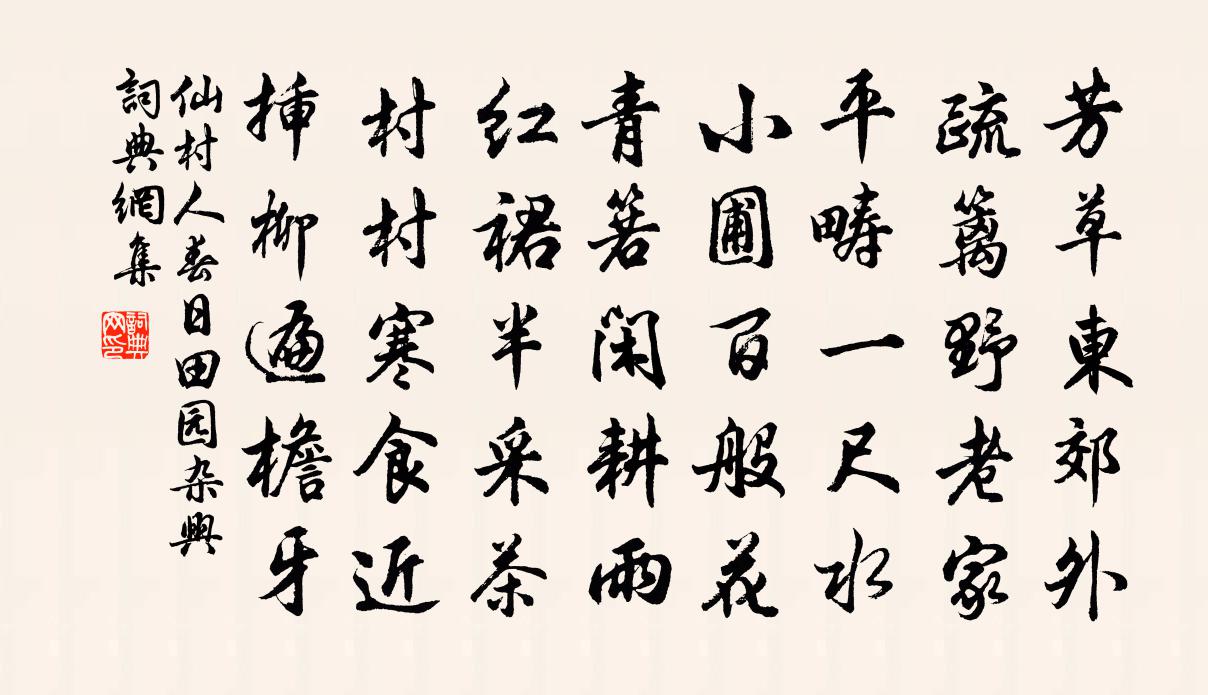 芳草東郊外
疏籬野老家
平疇一尺水
小圃百般花
青箬閑耕雨
红裙半采茶
村村寒食近
插柳遍檐牙
仙村人春日田园杂興
詞典網集
詞典网印